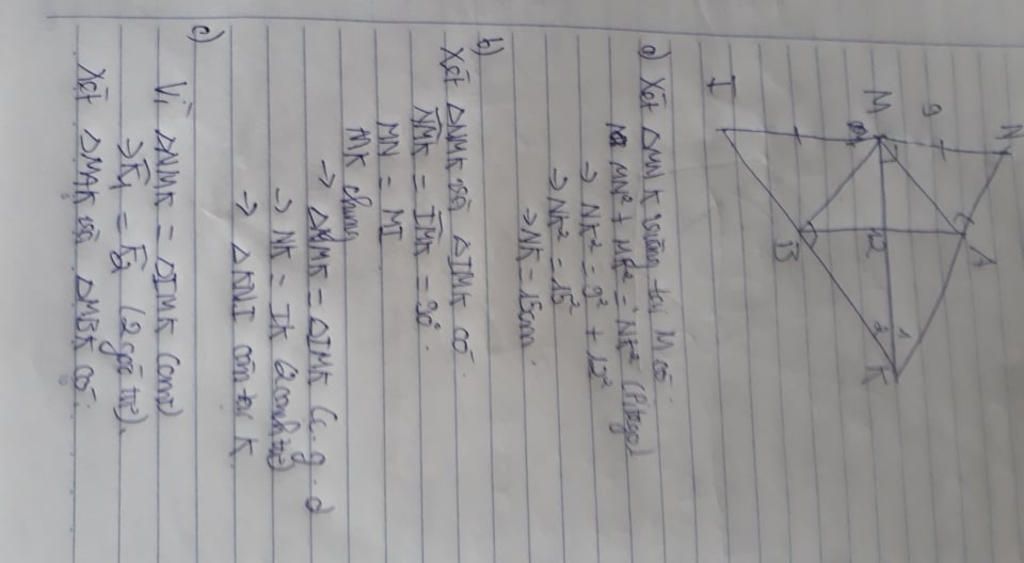 N
9
A
M
12
1
2
K
B
I
a) Xét △MNK vuông tại M có
MN² + MK² = NK² (Pitago)
→ NK² = 9² + 12²
→ NK² = 15²
→ NK = 15cm.
b)
Xét △NMK và △IMK có
NMK = IMK = 90°.
MN = MI
MK chung
→ △NMK = △IMK (c.g.c)
→ NK = IK (2 cạnh t/ư)
→ △KNI cân tại K
c)
Vì △NMK = △IMK (cmt)
→ K1 = K2 (2 góc t/ư).
Xét △MAK và △MBK có.